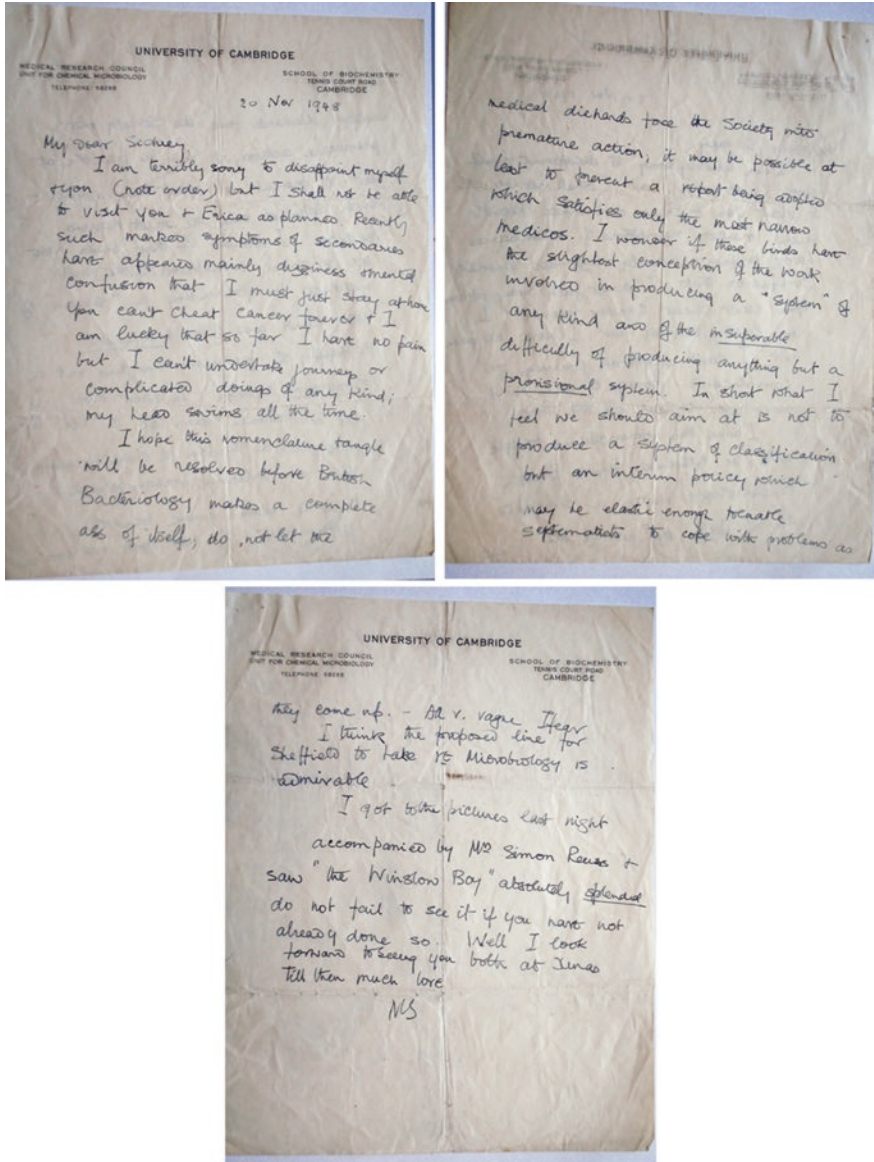 UNIVERSITY OF CAMBRIDGE
MEDICAL RESEARCH COUNCIL
UNIT FOR CHEMICAL MICROBIOLOGY
TELEPHONE 58288
SCHOOL OF BIOCHEMISTRY
TENNIS COURT ROAD
CAMBRIDGE
20 Nov 1948
My dear Sidney,
I am terribly sorry to disappoint myself
+ you (note order) but I shall not be able
to visit you + Erica as planned. Recently
such marked symptoms of secondaries
have appeared mainly dizziness + mental
confusion that I must just stay at home
You can't cheat cancer forever + I
am lucky that so far I have no pain
but I can't undertake journeys or
complicated doings of any kind;
my head swims all the time.
I hope this nomenclature tangle
will be resolved before British
Bacteriology makes a complete
ass of itself; do not let the
medical diehards force the Society into
premature action; it may be possible at
least to prevent a report being adopted
which satisfies only the most narrow
medicos. I wonder if these birds have
the slightest conception of the work
involved in producing a "system" of
any kind and of the insuperable
difficulty of producing anything but a
provisional system. In short what I
feel we should aim at is not to
produce a system of classification
but an interim policy which
may be elastic enough to enable
systematists to cope with problems as
UNIVERSITY OF CAMBRIDGE
MEDICAL RESEARCH COUNCIL
UNIT FOR CHEMICAL MICROBIOLOGY
TELEPHONE 58288
SCHOOL OF BIOCHEMISTRY
TENNIS COURT ROAD
CAMBRIDGE
they come up. - All v. vague I fear
I think the proposed line for
Sheffield to take re Microbiology is
admirable
I got to the pictures last night
accompanied by Simon +
saw "the Winslow Boy" absolutely splendid
do not fail to see it if you have not
already done so. Well I look
forward to seeing you both at Xmas
Till then much love
MS